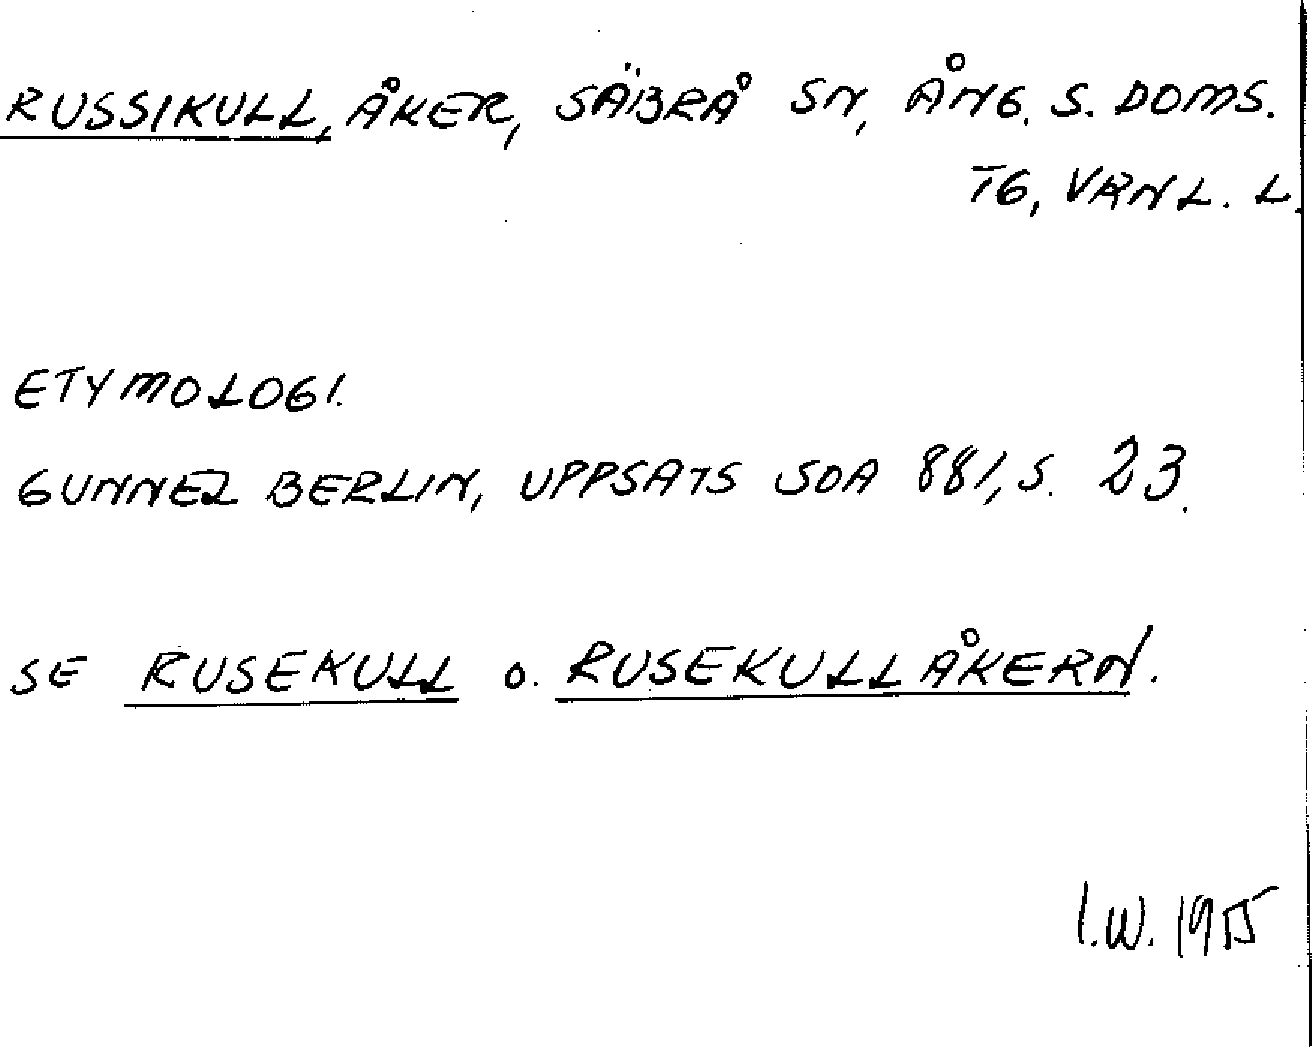 RUSSIKULL, ÅKER, SÄBRÅ SN, ÅNG. S. DOMS.
TG, VRNL. L.
ETYMOLOGI.
GUNNEL BERLIN, UPPSATS SOA 881, S. 23.
SE RUSEKULL O. RUSEKULLÅKERN.
I.W. 1955